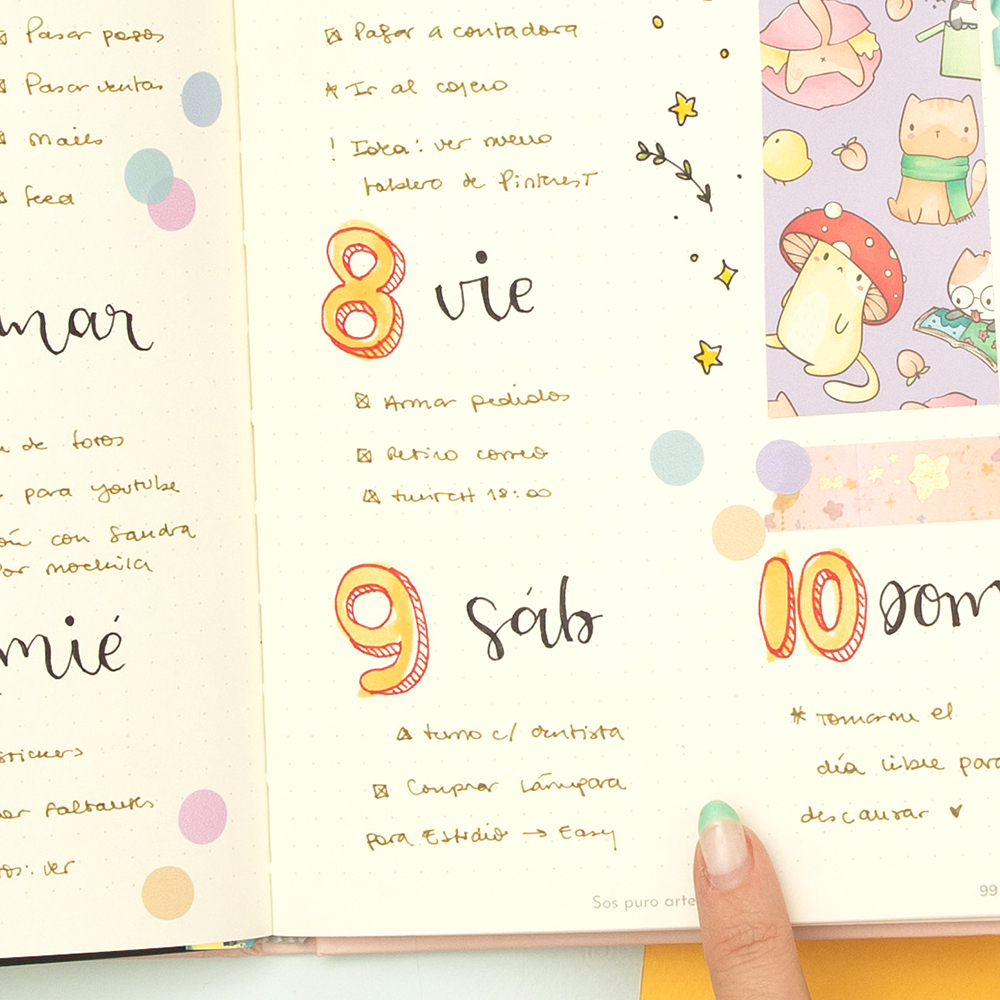 Pasar pesos
Pasar ventas
mails
feed
mar
de foros
para youtube
con Sandra
por mochila
mié
stickers
Faltantes
ver
Pagar a contadora
* Ir al cajero
! Idea: ver nuevo
tablero de Pinterest
8 vie
Armar pedidos
Retiro correo
twitch 18:00
9 sáb
turno c/ dentista
Comprar Lámpara
para Estudio → Easy
10 dom
* Tomarme el
día libre para
descansar ♥
Sos puro arte
99